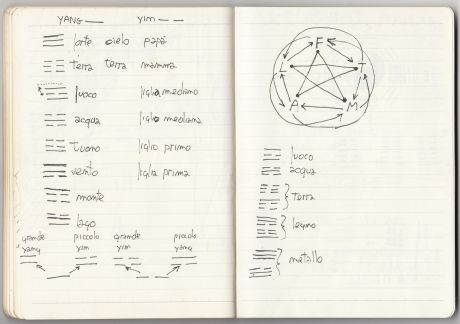 YANG
YIM
forte cielo papà
terra terra mamma
fuoco figlia mediano
acqua figlio mediana
tuono figlio primo
vento figlia prima
monte
lago
grande yang
piccolo yim
grande yim
piccolo yang
F
L T
A M
fuoco
acqua
terra
legno
metallo